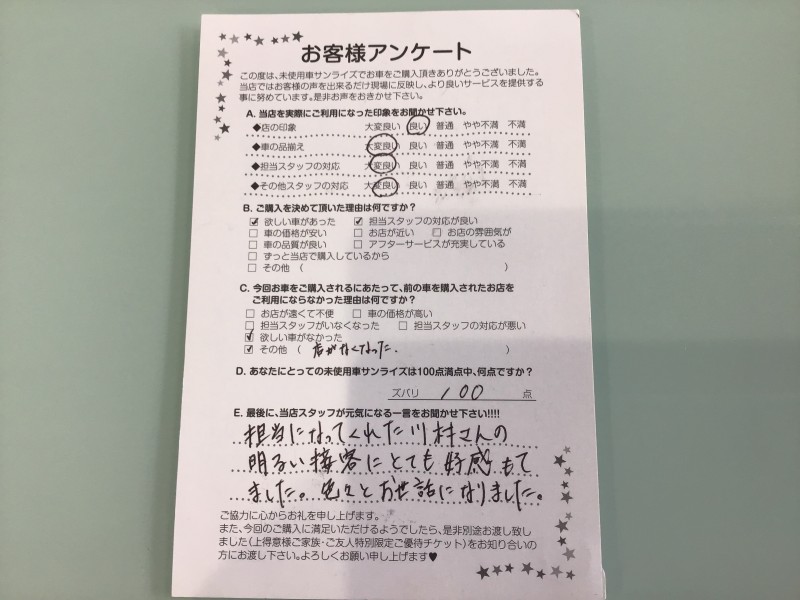 お客様アンケート
この度は、未使用車サンライズでお車をご購入頂きありがとうございました。
当店ではお客様の声を出来るだけ現場に反映し、より良いサービスを提供する
事に努めています。是非お声をおきかせ下さい。
A. 当店を実際にご利用になった印象をお聞かせ下さい。
◆店の印象 大変良い 良い 普通 やや不満 不満
◆車の品揃え 大変良い 良い 普通 やや不満 不満
◆担当スタッフの対応 大変良い 良い 普通 やや不満 不満
◆その他スタッフの対応 大変良い 良い 普通 やや不満 不満
B. ご購入を決めて頂いた理由は何ですか?
☑ 欲しい車があった ☑ 担当スタッフの対応が良い
□ 車の価格が安い □ お店が近い □ お店の雰囲気が
□ 車の品質が良い □ アフターサービスが充実している
□ ずっと当店で購入しているから
□ その他 ( )
C. 今回お車をご購入されるにあたって、前の車を購入されたお店を
ご利用にならなかった理由は何ですか?
□ お店が遠くて不便 □ 車の価格が高い
□ 担当スタッフがいなくなった □ 担当スタッフの対応が悪い
☑ 欲しい車がなかった
☑ その他 ( 店がなくなった. )
D. あなたにとっての未使用車サンライズは100点満点中、何点ですか?
ズバリ 100 点
E. 最後に、当店スタッフが元気になる一言をお聞かせ下さい!!!!
担当になってくれた川村さんの
明るい接客にとても好感もて
ました。色々とお世話になりました。
ご協力に心からお礼を申し上げます。
また、今回のご購入に満足いただけるようでしたら、是非別途お渡し致し
ました(上得意様ご家族・ご友人特別限定ご優待チケット)をお知り合いの
方にお渡し下さい。よろしくお願い申し上げます♥